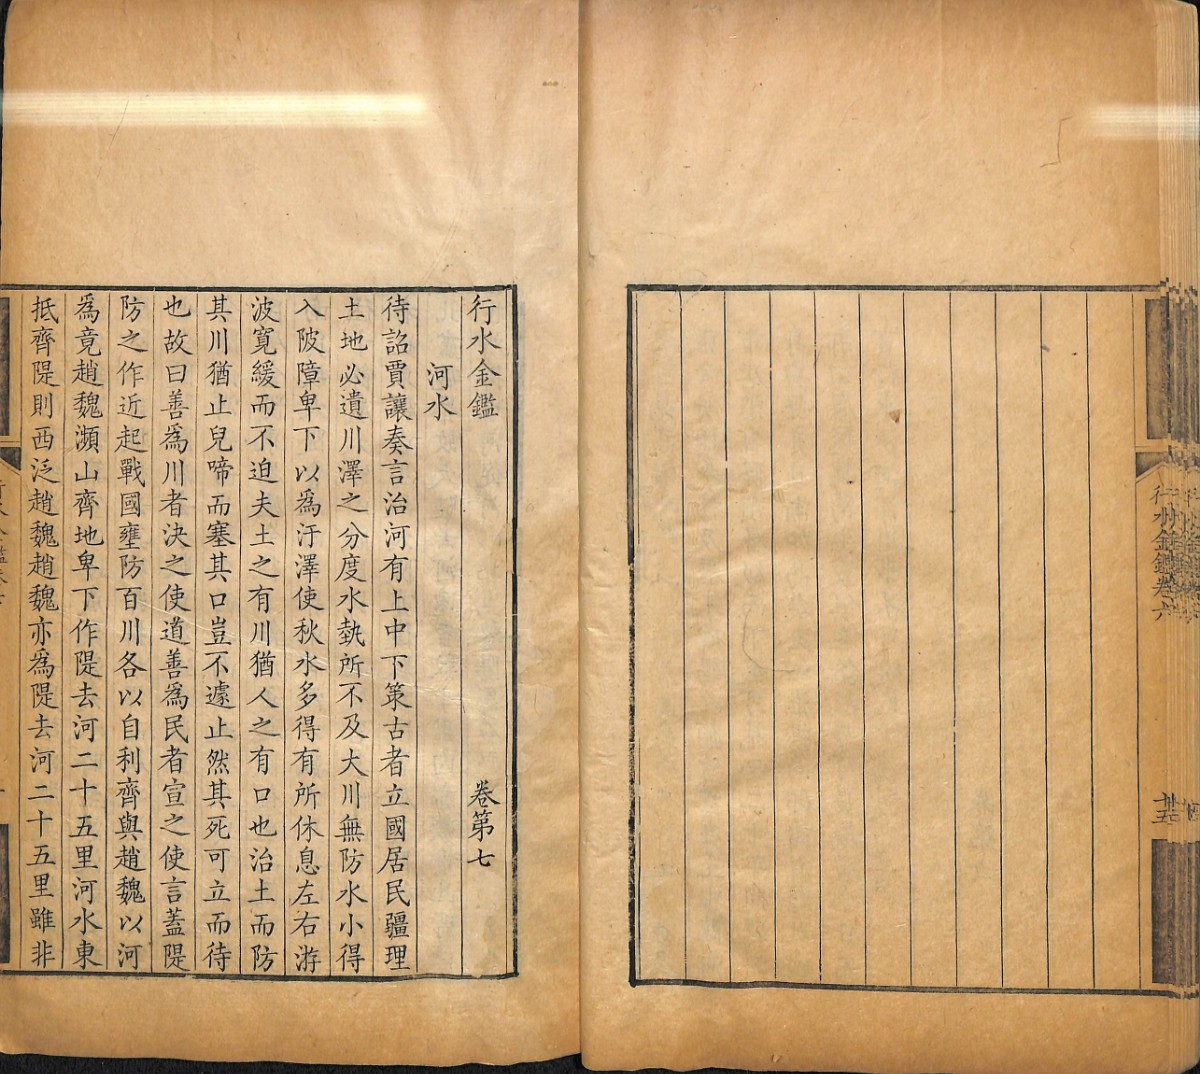 行水金鑑卷六
行水金鑑 卷第七
河水
待詔賈讓奏言治河有上中下策古者立國居民疆理
土地必遺川澤之分度水埶所不及大川無防水小得
入陂障卑下以爲汙澤使秋水多得有所休息左右游
波寬緩而不迫夫土之有川猶人之有口也治土而防
其川猶止兒啼而塞其口豈不遽止然其死可立而待
也故曰善爲川者決之使道善爲民者宣之使言蓋隄
防之作近起戰國壅防百川各以自利齊與趙魏以河
爲竟趙魏瀕山齊地卑下作隄去河二十五里河水東
抵齊隄則西泛趙魏趙魏亦爲隄去河二十五里雖非